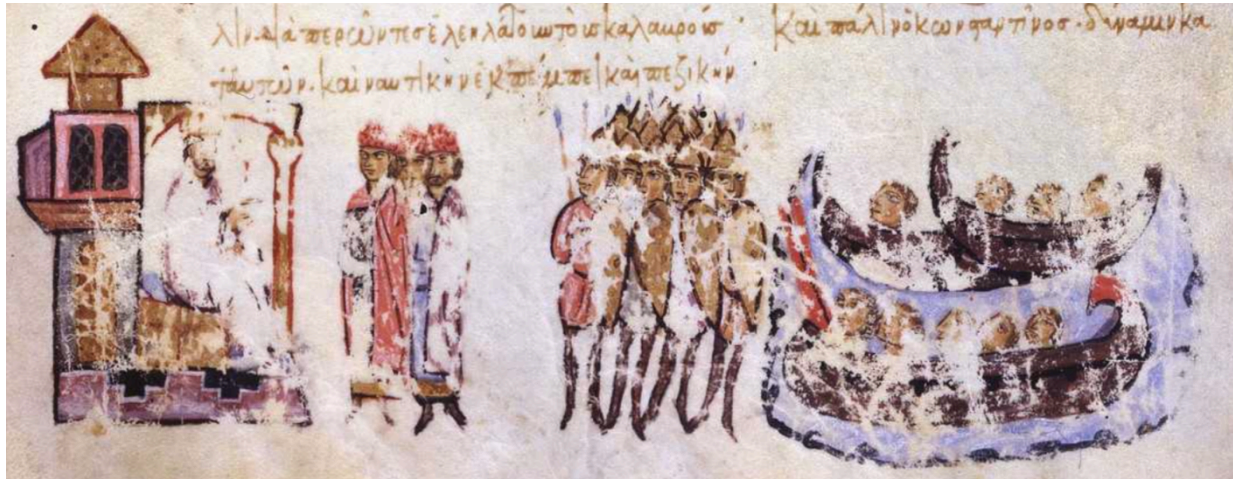 λιν διαπερῶντες ἐλεηλάτουν τοὺς καλαυροὺς καὶ πάλιν ὁ κωνσταντῖνος · δύναμιν κα
τ' αὐτῶν · καὶ ναυτικὴν ἐκπέμπει καὶ πεζικήν